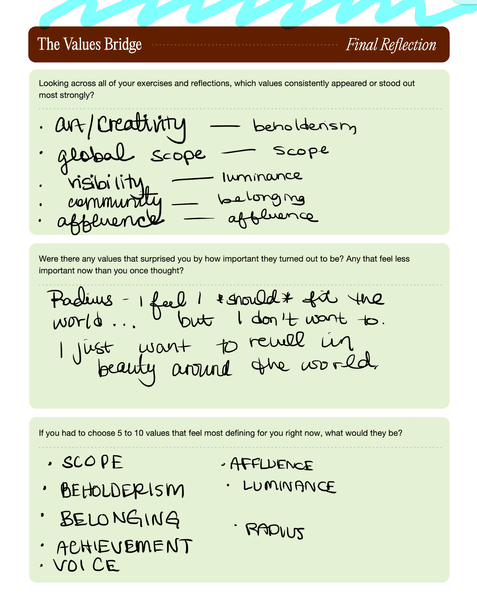 The Values Bridge
Final Reflection
Looking across all of your exercises and reflections, which values consistently appeared or stood out
most strongly?
· art/creativity — beholderism
· global scope — scope
· visibility — luminance
· community — belonging
· affluence — affluence
Were there any values that surprised you by how important they turned out to be? Any that feel less
important now than you once thought?
Radius - I feel I *should* fix the
world... but I don't want to.
I just want to revell in
beauty around the world.
If you had to choose 5 to 10 values that feel most defining for you right now, what would they be?
· SCOPE
· BEHOLDERISM
· BELONGING
· ACHIEVEMENT
· VOICE
· AFFLUENCE
· LUMINANCE
· RADIUS